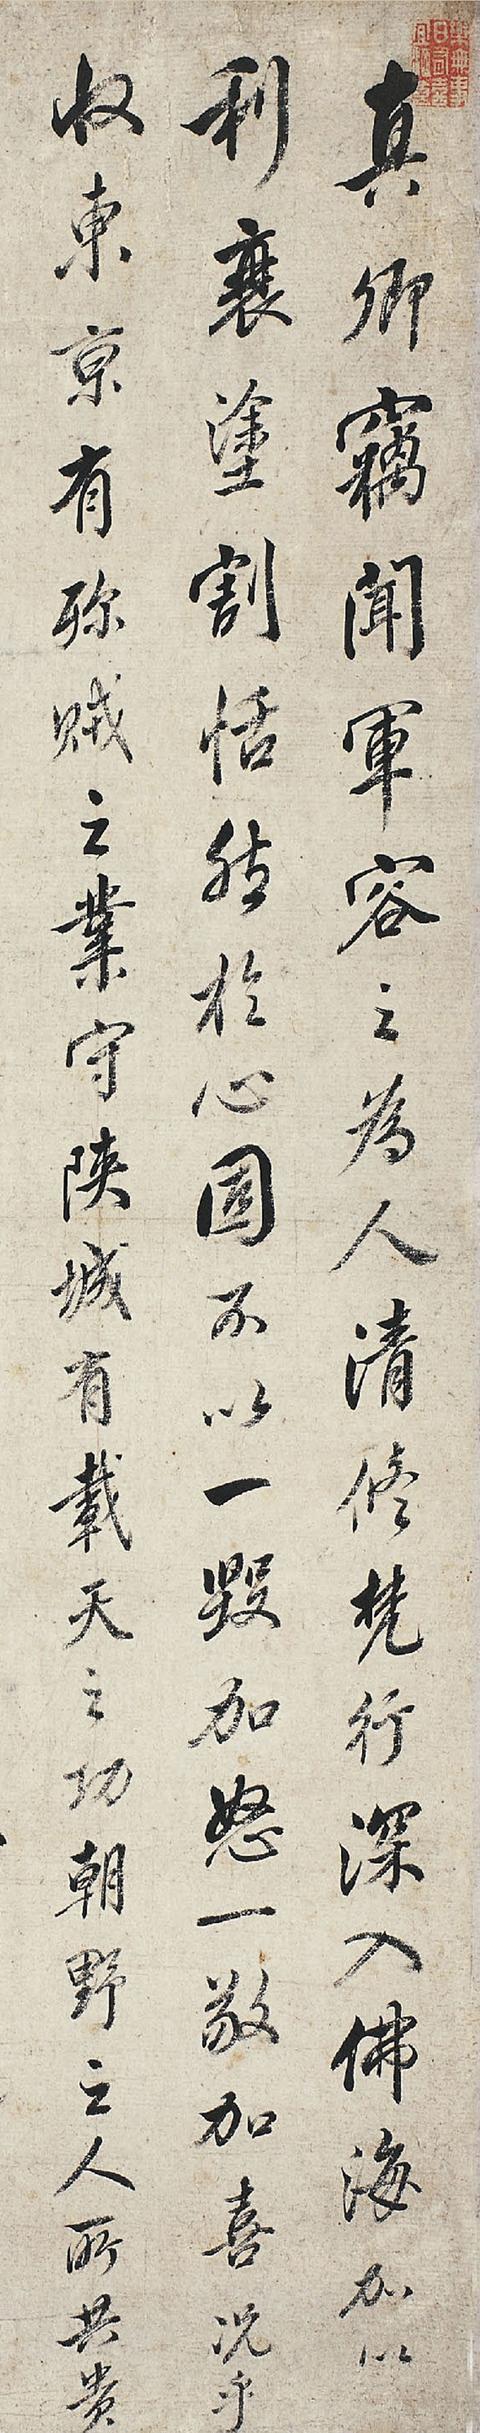 真卿竊聞軍容之為人清修梵行深入佛海加以
利衰塗割恬然於心固不以一毀加怒一敬加喜況乎
收東京有殄賊之業守陝城有載天之功朝野之人所共貴